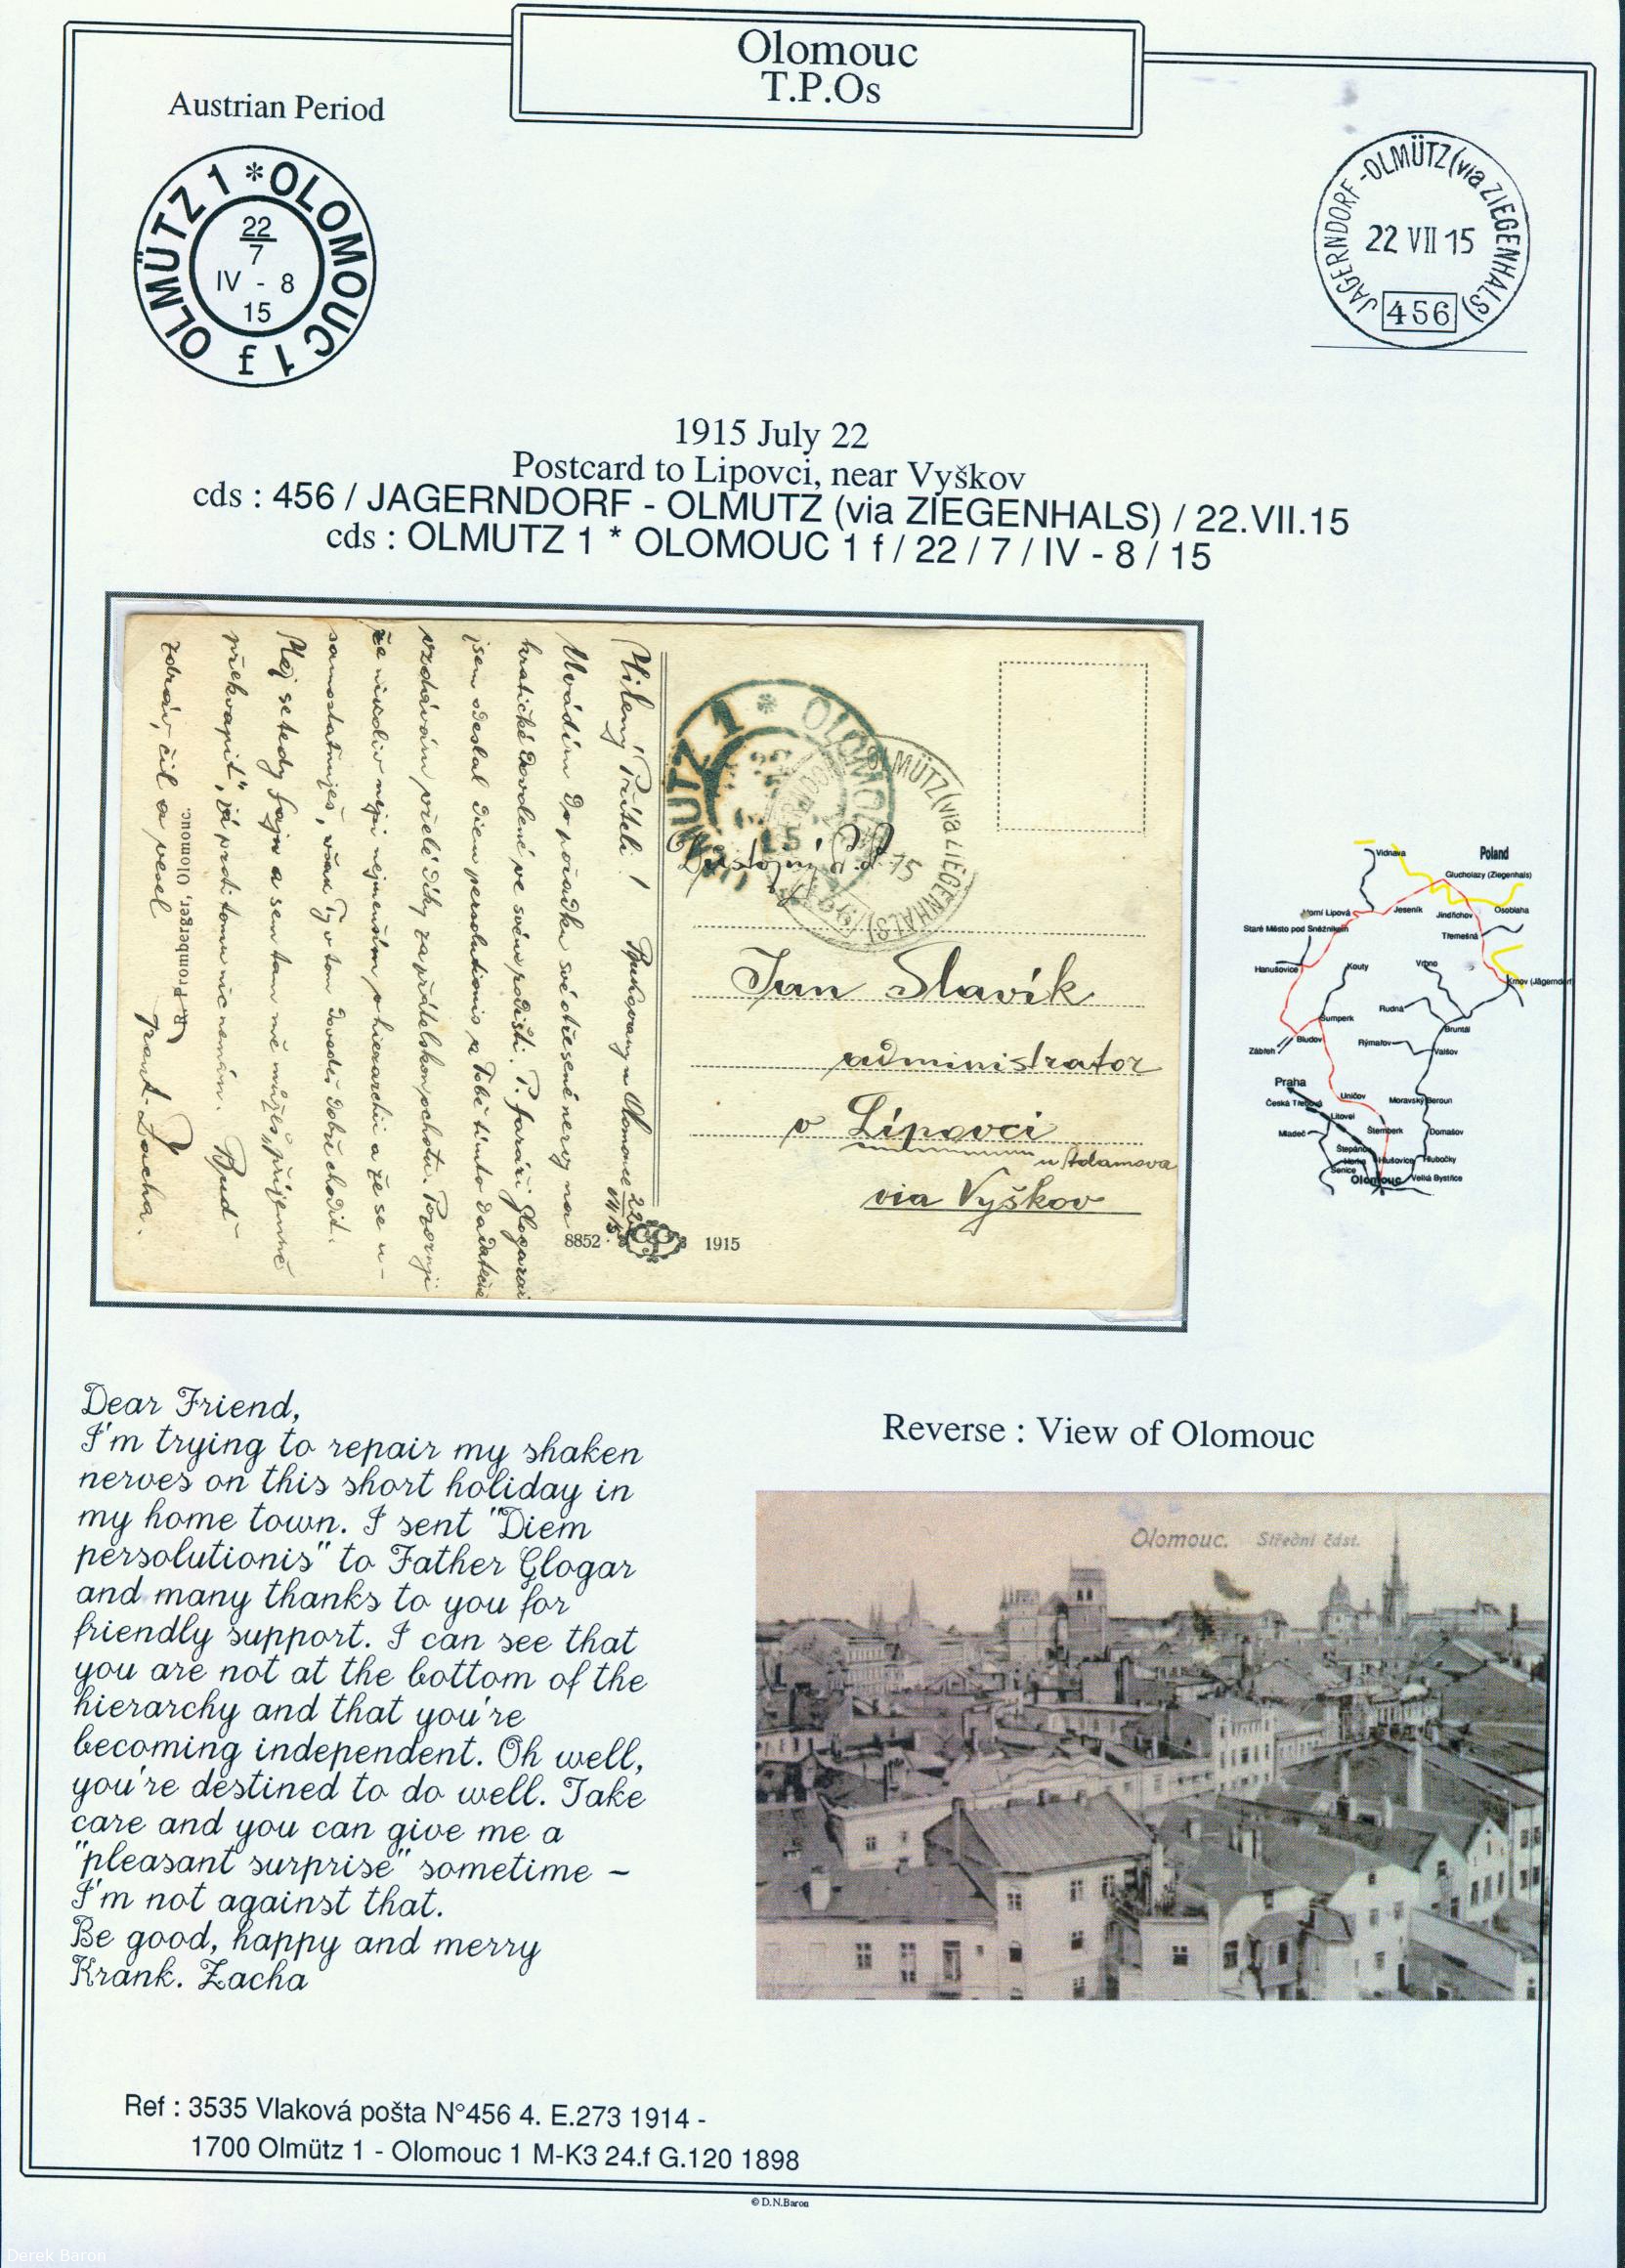 Olomouc
T.P.Os
Austrian Period
OLMÜTZ 1 * OLOMOUC 1 f
22
7
IV - 8
15
JAGERNDORF-OLMÜTZ (via ZIEGENHALS)
22 VII 15
456
1915 July 22
Postcard to Lipovci, near Vyškov
cds : 456 / JAGERNDORF - OLMUTZ (via ZIEGENHALS) / 22.VII.15
cds : OLMUTZ 1 * OLOMOUC 1 f / 22 / 7 / IV - 8 / 15
Milený Příteli!
Bukovany u Olomouce 22/VII 15
Uvádím do pořádku své otřesené nervy na
kratičké dovolené ve svém rodišti. P. faráři Glogarovi
jsem odeslal diem persolutionis a Tobě tímto
vzdávám vřelé díky za přátelskou ochotu.
samostatňuješ, však Ty v tom dovedeš dobře chodit.
Měj se tedy fajn a sem tam mě můžeš „příjemně
překvapit“, já proti tomu nic nemám. Buď
zdráv, čil a vesel
Frant. Zacha.
R. Promberger, Olomouc.
MÜTZ 1 * OLOMOU
15
MÜTZ (via ZIEGENHALS)
15
Důstojný P. T.
Jan Slavík
administrator
v Lipovci
u Adamova
via Vyškov
8852
1915
Vidnava
Poland
Glucholazy (Ziegenhals)
Horní Lipová
Jeseník
Jindřichov
Osoblaha
Staré Město pod Sněžníkem
Třemešná
Hanušovice
Kouty
Vrbno
Krnov (Jägerndorf
Rudná
Šumperk
Bruntál
Bludov
Zábřeh
Rýmařov
Valšov
Praha
Česká Třebová
Uničov
Moravský Beroun
Litovel
Mladeč
Šternberk
Domašov
Štěpánov
Hlušovice
Hlubočky
Senice
Olomouc
Velká Bystřice
Dear Friend,
I'm trying to repair my shaken
nerves on this short holiday in
my home town. I sent "Diem
persolutionis" to Father Glogar
and many thanks to you for
friendly support. I can see that
you are not at the bottom of the
hierarchy and that you're
becoming independent. Oh well,
you're destined to do well. Take
care and you can give me a
"pleasant surprise" sometime –
I'm not against that.
Be good, happy and merry
Krank. Zacha
Reverse : View of Olomouc
Olomouc. Střední část.
Ref : 3535 Vlaková pošta N°456 4. E.273 1914 -
1700 Olmütz 1 - Olomouc 1 M-K3 24.f G.120 1898
© D.N.Baron
Derek Baron